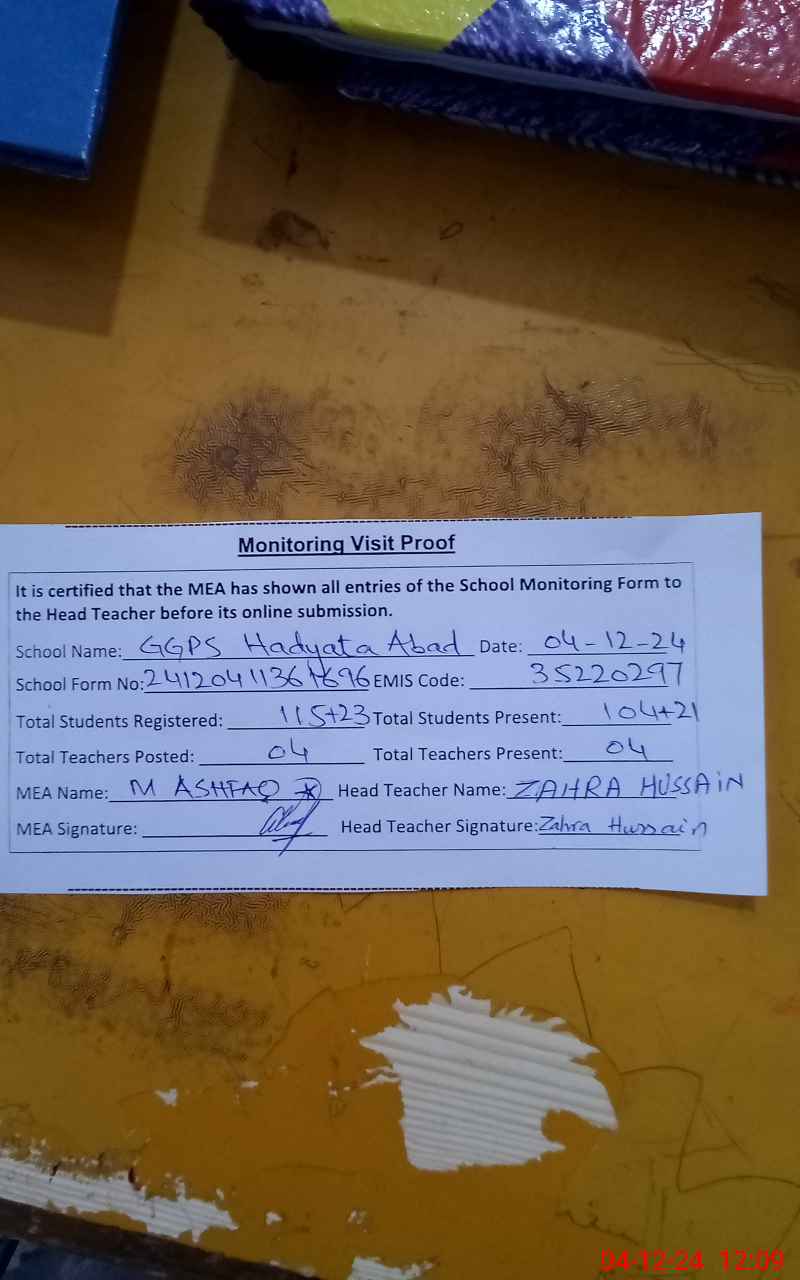 Monitoring Visit Proof
It is certified that the MEA has shown all entries of the School Monitoring Form to
the Head Teacher before its online submission.
School Name: GGPS Hadyata Abad Date: 04-12-24
School Form No: EMIS Code: 35220297
Total Students Registered: 115+23 Total Students Present: 104+21
Total Teachers Posted: 04 Total Teachers Present: 04
MEA Name: M ASHFAQ Head Teacher Name: ZAHRA HUSSAiN
MEA Signature: Head Teacher Signature: Zahra Hussain
04-12-24 12:09